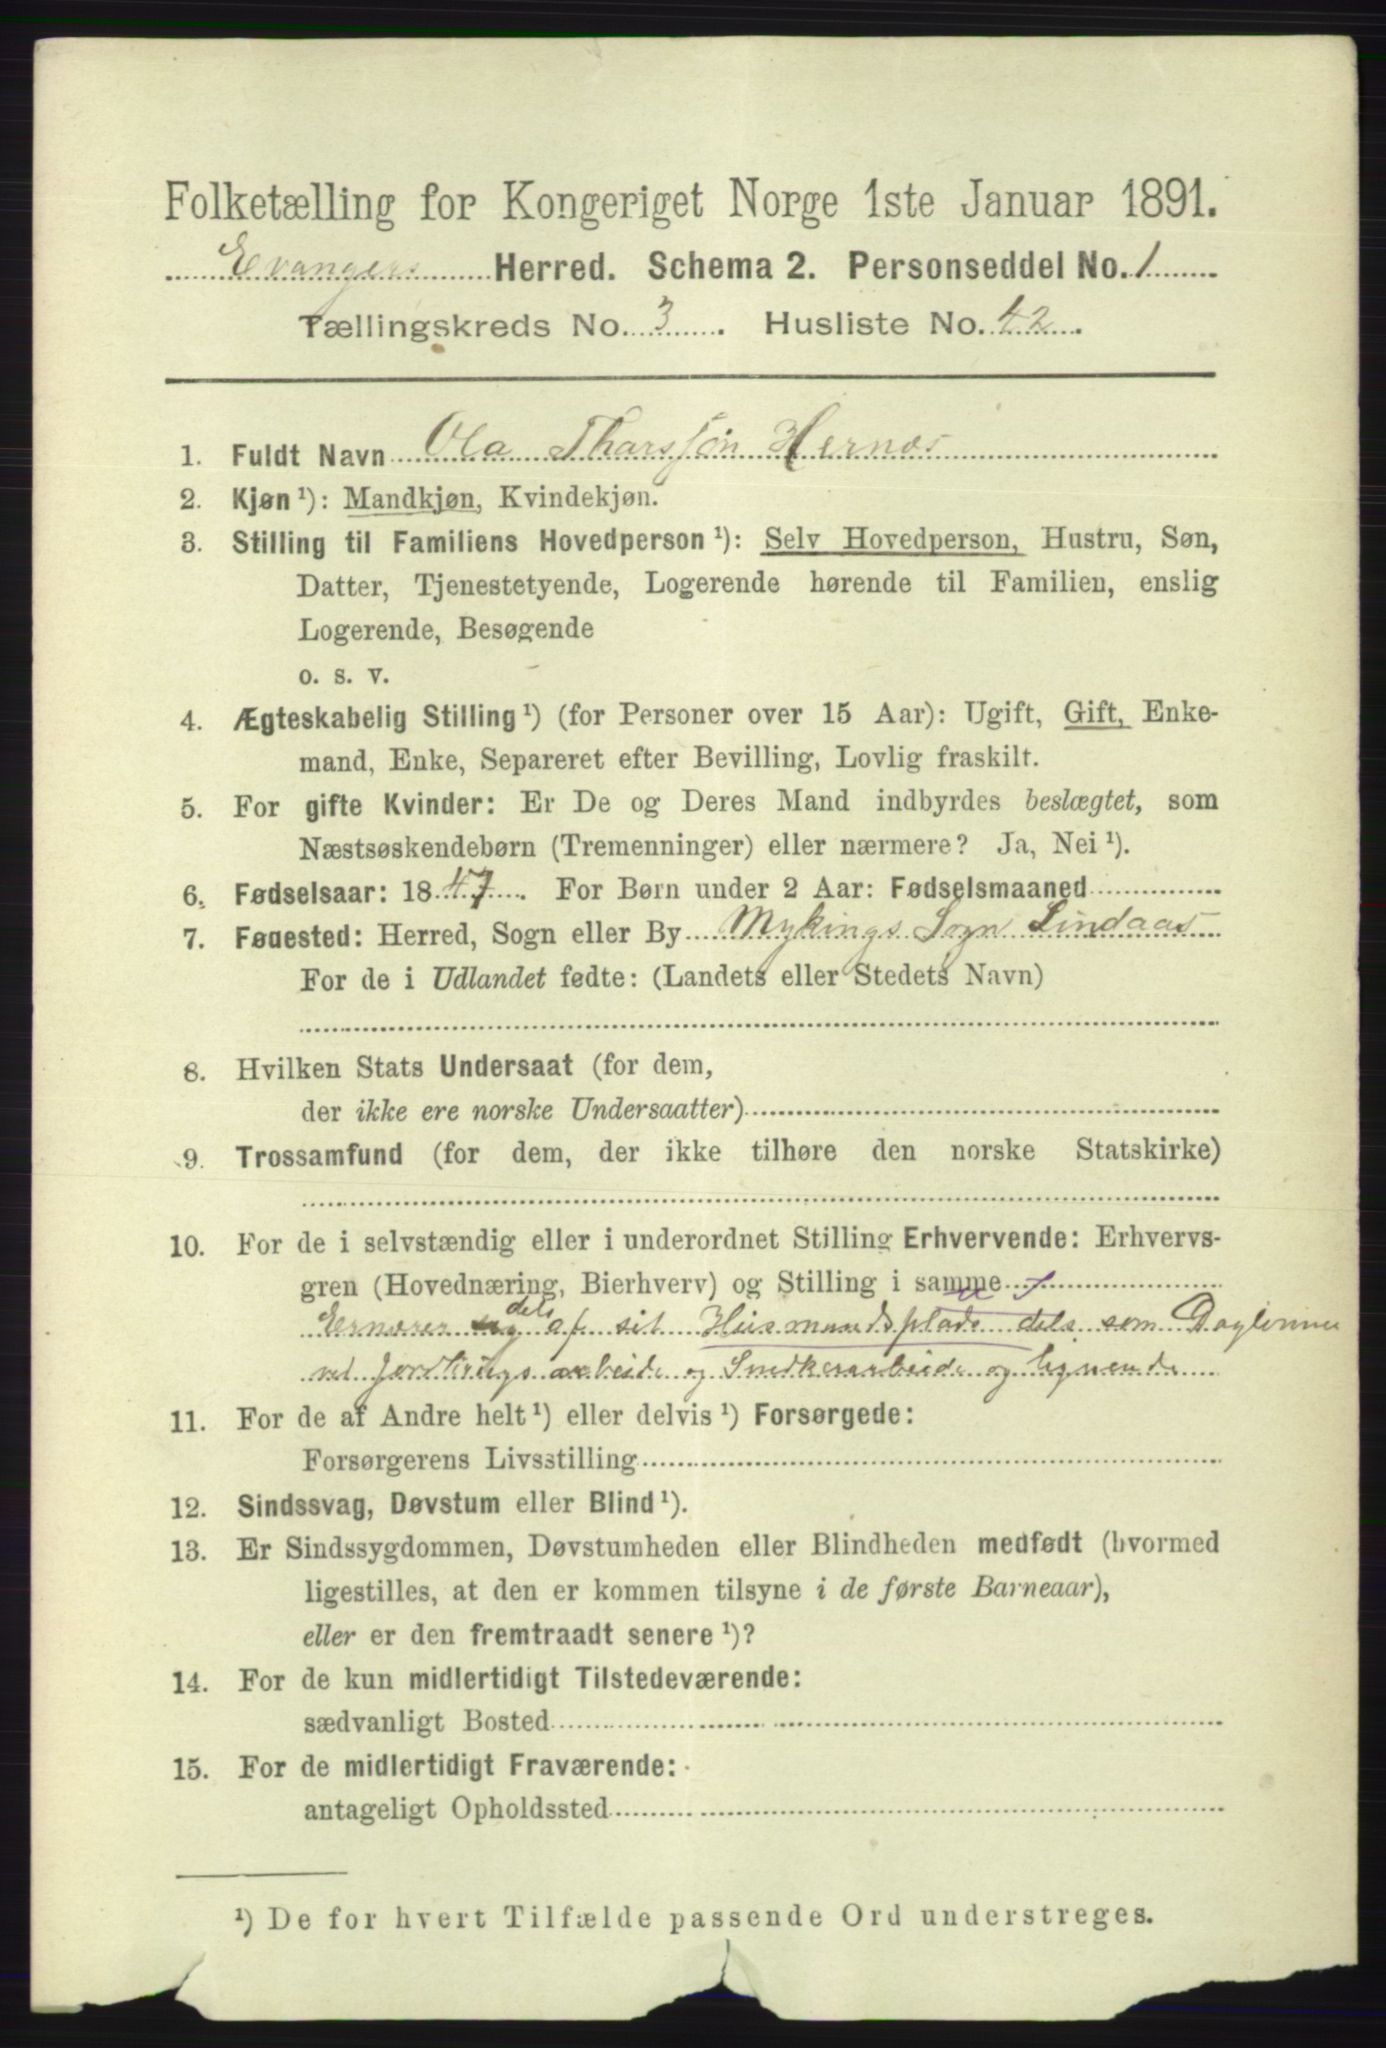 Folketælling for Kongeriget Norge 1ste Januar 1891.
Evangers Herred. Schema 2. Personseddel No. 1
Tællingskreds No. 3. Husliste No. 42.
1. Fuldt Navn Ola Tharssøn Hernæs
2. Kjøn¹): Mandkjøn, Kvindekjøn.
3. Stilling til Familiens Hovedperson¹): Selv Hovedperson, Hustru, Søn,
Datter, Tjenestetyende, Logerende hørende til Familien, enslig
Logerende, Besøgende
o. s. v.
4. Ægteskabelig Stilling¹) (for Personer over 15 Aar): Ugift, Gift, Enke-
mand, Enke, Separeret efter Bevilling, Lovlig fraskilt.
5. For gifte Kvinder: Er De og Deres Mand indbyrdes beslægtet, som
Næstsøskendebørn (Tremenninger) eller nærmere? Ja, Nei¹).
6. Fødselsaar: 1847. For Børn under 2 Aar: Fødselsmaaned
7. Fødested: Herred, Sogn eller By Mykings Sogn Lindaas
For de i Udlandet fødte: (Landets eller Stedets Navn)
8. Hvilken Stats Undersaat (for dem,
der ikke ere norske Undersaatter)
9. Trossamfund (for dem, der ikke tilhøre den norske Statskirke)
10. For de i selvstændig eller i underordnet Stilling Erhvervende: Erhvervs-
gren (Hovednæring, Bierhverv) og Stilling i samme
Ernærer sig dels af sit Husmandsplads dels som Daglønner
ved Jordbrugsarbeide og Snedkerarbeide og lignende
11. For de af Andre helt¹) eller delvis¹) Forsørgede:
Forsørgerens Livsstilling
12. Sindssvag, Døvstum eller Blind¹).
13. Er Sindssygdommen, Døvstumheden eller Blindheden medfødt (hvormed
ligestilles, at den er kommen tilsyne i de første Barneaar),
eller er den fremtraadt senere¹)?
14. For de kun midlertidigt Tilstedeværende:
sædvanligt Bosted
15. For de midlertidigt Fraværende:
antageligt Opholdssted
¹) De for hvert Tilfælde passende Ord understreges.